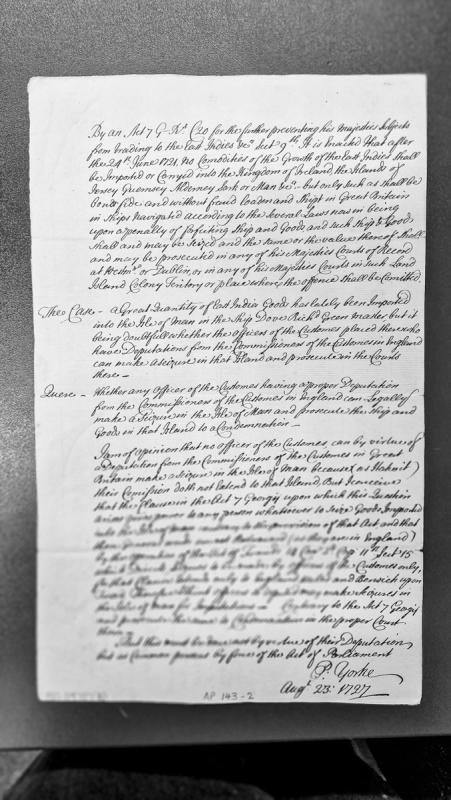 By an Act 7 G. Rs. C20 for the further preventing his Majesties Subjects
from trading to the East Indies &c. Sect 9th. It is Enacted that after
the 24th. June 1721. No Comodities of the Growth of the East Indies Shall
be Imported or Carryed into the Kingdom of Ireland, the Islands of
Jersey Guernsey Alderney Sark or Man &c. but only such as shall be
bona fide and without fraud loaden and Shipt in Great Britain
in Ships Navigated according to the Several Laws now in being
upon a penalty of forfeiting Ship and Goods and such Ship & Goods
shall and may be Seized and the same or the value thereof shall
and may be prosecuted in any of his Majesties Courts of Record
at Westmr. or Dublin, or in any of his Majesties Courts in such Land
Island Colony Teritory or place where the offence shall be Comitted.
The Case - A Great Quantity of East India Goods has lately been Imported
into the Isle of Man in the Ship Dove Richd. Green master but it
being doubtfull whether the officers of the Customes placed there who
have Deputations from the Commissioners of the Customes in England
can make a Seizure in that Island and prosecute in the Courts
there -
Quere - Whether any Officer of the Customes having a proper Deputation
from the Commissioners of the Customes in England can Legally
make a Seizure in the Isle of Man and prosecute the Ship and
Goods in that Island to a Condemnation -
I am of opinion that no officer of the Customes can by virtue of
a Deputation from the Commissioners of the Customes in Great
Britain make a Seizure in the Isle of Man because (as I take it)
their Comission doth not Extend to that Island, But I conceive
that the Clause in the Act 7 Georgij upon which this Question
arises gives power to any person whatsoever to Seize Goods Imported
into the Isle of Man contrary to the provision of that Act and that
they are in England)
by the operation of the Act of 11th Sect 15
by officers of the Customes only,
only to England Wales and Berwick upon
may make Seizures in
the Isle of Man for Importations Contrary to the Act 7 Georgij
and prosecute the same to Condemnation in the proper Court
there
But this must be done not by virtue of their Deputation
but as Common persons by force of the Act of Parliament
P. Yorke
Augt. 23: 1727
AP 143-2